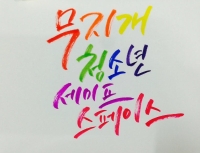 무지개
청소년
세이프
스페이스